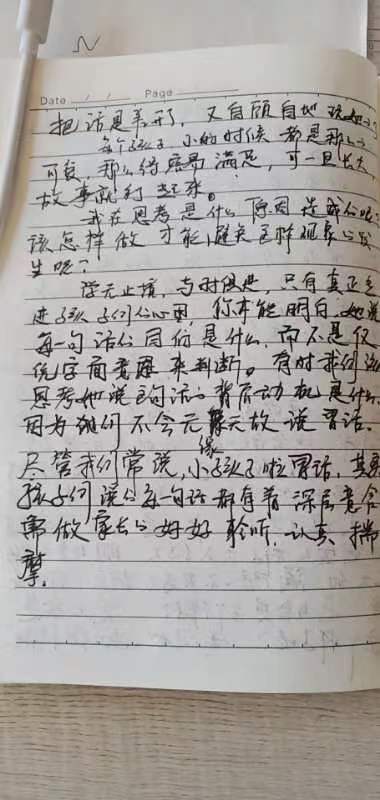 Date / / Page
把话是弄形,又自顾自地玩她的
每个孩子小的时候都是那么
可良,那么得容易满足,可一旦长大,
故事就打起来。
我在思考是什么原因造成的呢?
该怎样做才能避免这样现象的发
生呢?
学无止境,与时俱进,只有真正走
进了孩子们的心里,你才能明白,她说
每一句话的目的是什么,而不是仅
凭字面意思来判断。有时我们该
思考她说的话的背后动机是什么
因为他们不会无缘无故说胃话。
尽管我们常说,小孩子啦冒话,其实
孩子们说的每一句话都有着深层意含
需做家长的好好聆听,认真揣
摩。